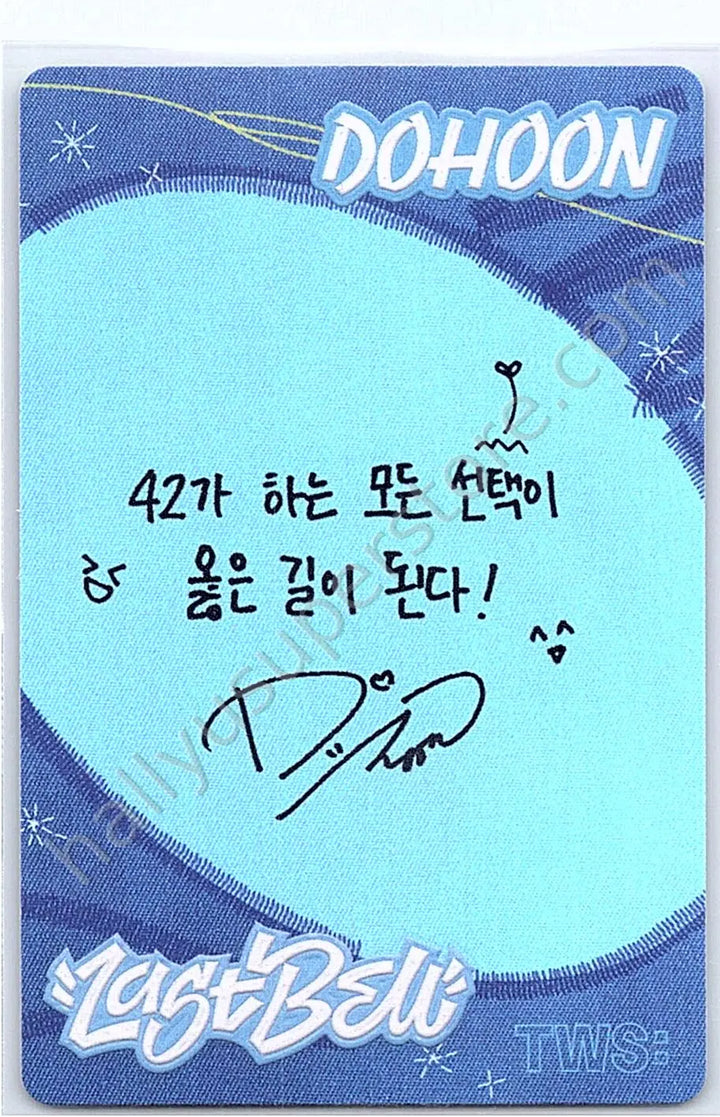 DOHOON
42가 하는 모든 선택이
옳은 길이 된다!
Dohoon
Last Bell
TWS:
hallyusuperstore.com